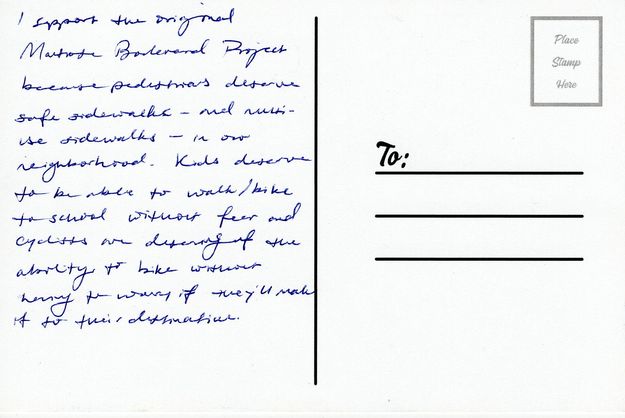 I support the original
Melrose Boulevard Project
because pedestrians deserve
safe sidewalks - and multi-
use sidewalks - in our
neighborhood. Kids deserve
to be able to walk/bike
to school without fear and
cyclists are deserving of the
ability to bike without
having to worry if they'll make
it to their destination.
Place
Stamp
Here
To: